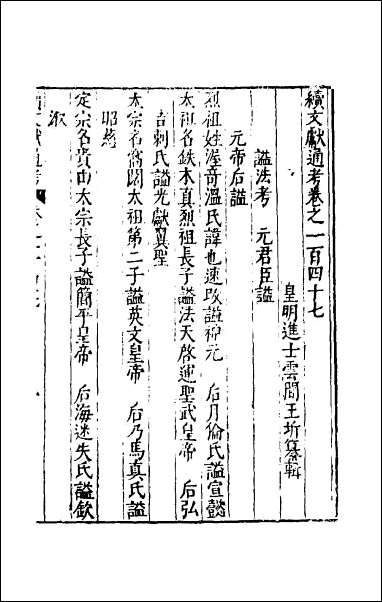 續文獻通考卷之一百四十七
皇明進士雲間王圻纂輯
謚法考　元君臣謚
元帝后謚
烈祖姓渥奇溫氏諱也速攺謚神元　后月倫氏謚宣懿
太祖名鉄木真烈祖長子謚法天啓運聖武皇帝　后弘
吉剌氏謚光獻翼聖
太宗名窩闊太祖第二子謚英文皇帝　后乃馬真氏謚
昭慈
定宗名貴由太宗長子謚簡平皇帝　后海迷失氏謚欽
淑